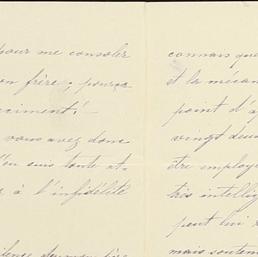 pour me consoler
on frère; pourra
eciment!
vous avez donc
'en suis toute at
à l'infidélité
connais que
et la mécan
point d'a
vingt deux
être employ
très intellig
peut lui
mais souten